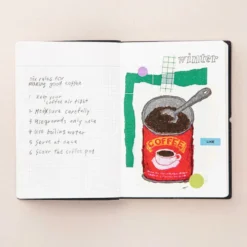 the rules for
making good coffee
1 keep your
coffee air tight
2 measure carefully
3 use grounds only once
4 use boiling water
5 serve at once
6 scour the coffee pot
winter
COFFEE